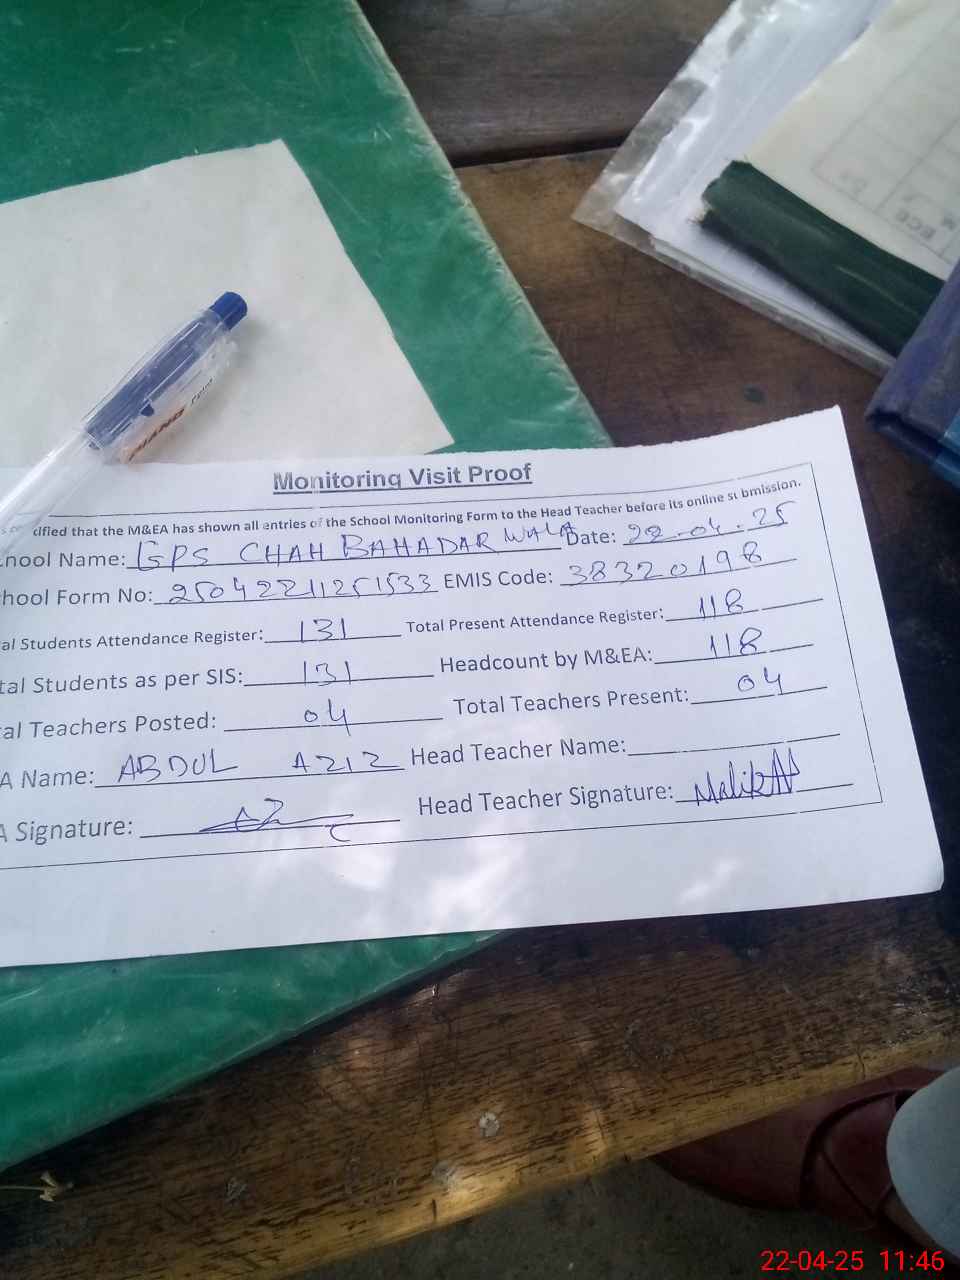 ECE
CHANG Point
Monitoring Visit Proof
tified that the M&EA has shown all entries of the School Monitoring Form to the Head Teacher before its online submission.
hool Name: GPS CHAH BAHADAR WALA Date: 22-04-25
hool Form No: EMIS Code: 38320198
al Students Attendance Register: 131 Total Present Attendance Register: 118
tal Students as per SIS: 131 Headcount by M&EA: 118
al Teachers Posted: 04 Total Teachers Present: 04
A Name: ABDUL AZIZ Head Teacher Name:
A Signature: Head Teacher Signature: Malik
22-04-25 11:46